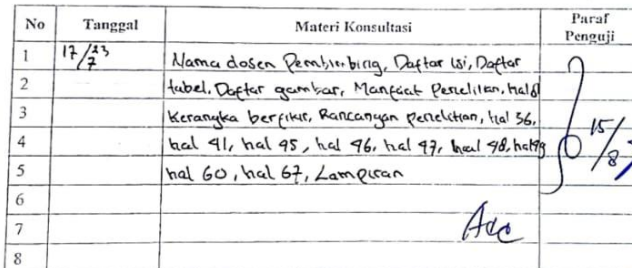 No Tanggal Materi Konsultasi Paraf Penguji
1 17/23 7 Nama dosen Pembimbing, Daftar isi, Daftar
2 tabel, Daftar gambar, Manfaat Penelitian, hal
3 Kerangka berfikir, Rancangan penelitian, hal 36,
4 hal 41, hal 45, hal 46, hal 47, hal 48, hal 49
5 hal 60, hal 67, Lampiran
15/8
6
7 Acc
8